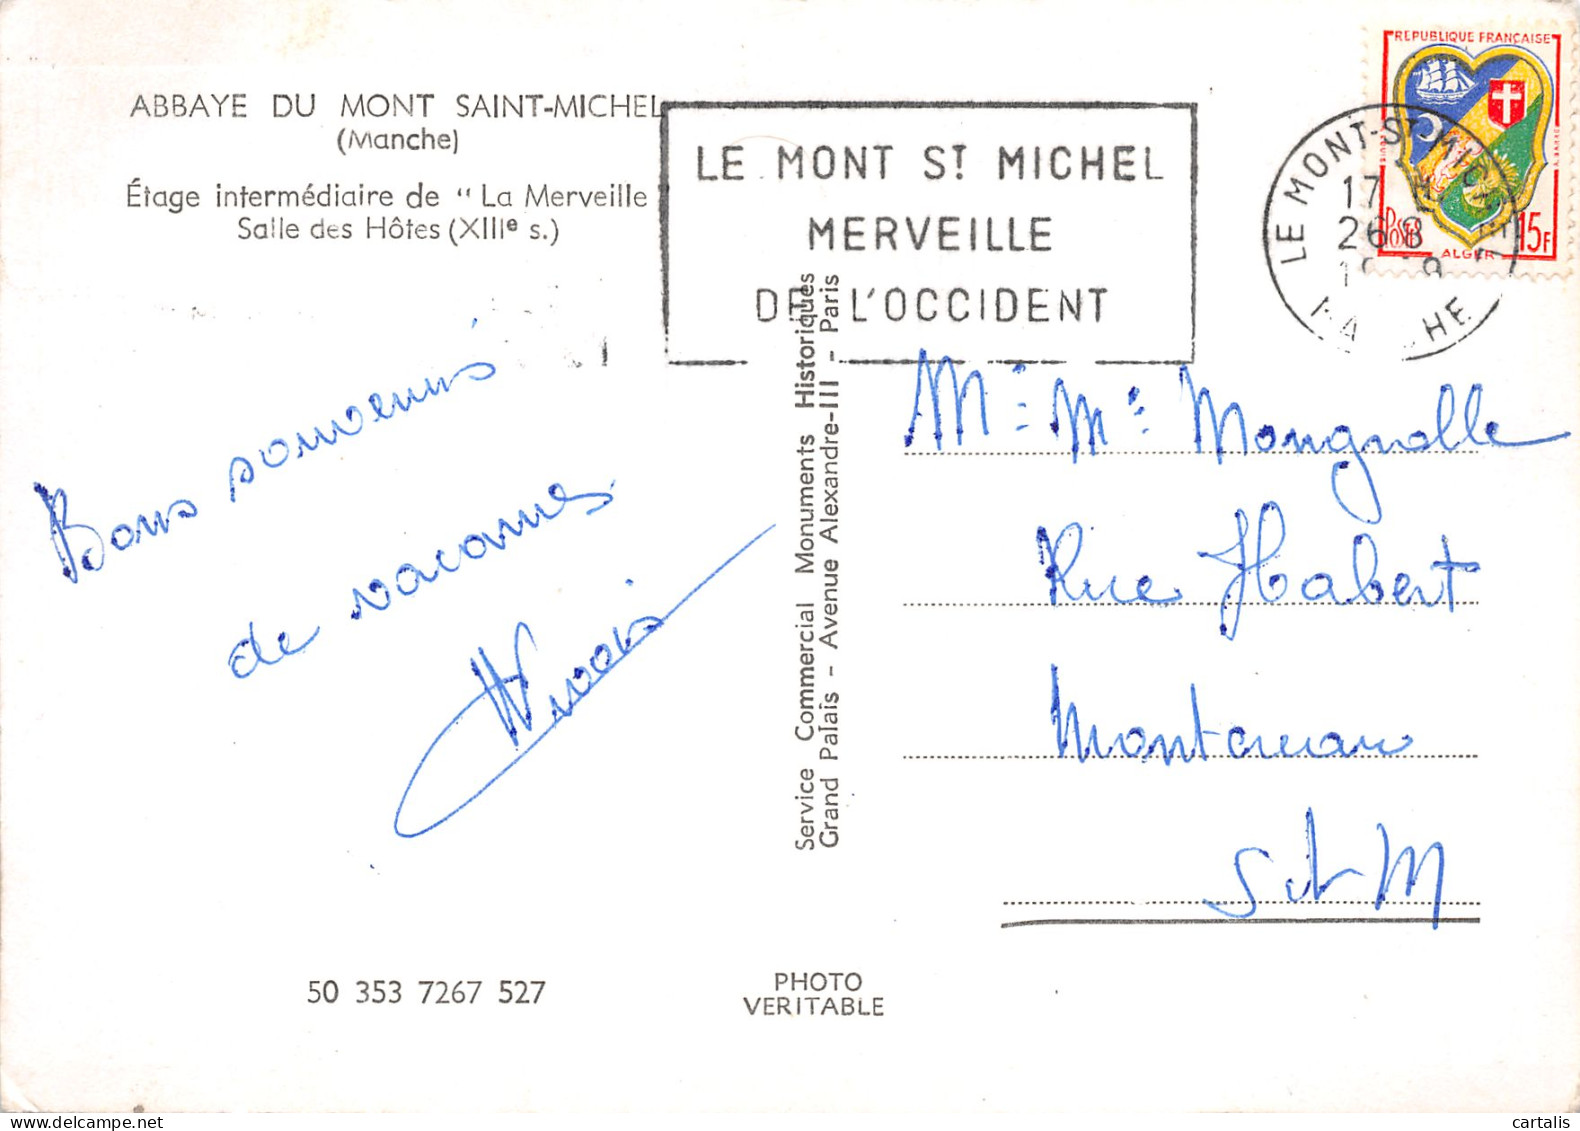 ABBAYE DU MONT SAINT-MICHEL
(Manche)
Étage intermédiaire de " La Merveille
Salle des Hôtes (XIIIe s.)
LE MONT ST MICHEL
MERVEILLE
DE L'OCCIDENT
REPUBLIQUE FRANÇAISE
POSTES
15F
ALGER
LE MONT-ST-MICHEL
17
26 8
MANCHE
Bons souvenirs
de vacances
Service Commercial Monuments Historiques
Grand Palais - Avenue Alexandre-III - Paris
Mr Me Mongnolle
Rue Habert
Montereau
S et M
50 353 7267 527
PHOTO
VERITABLE
cartalis